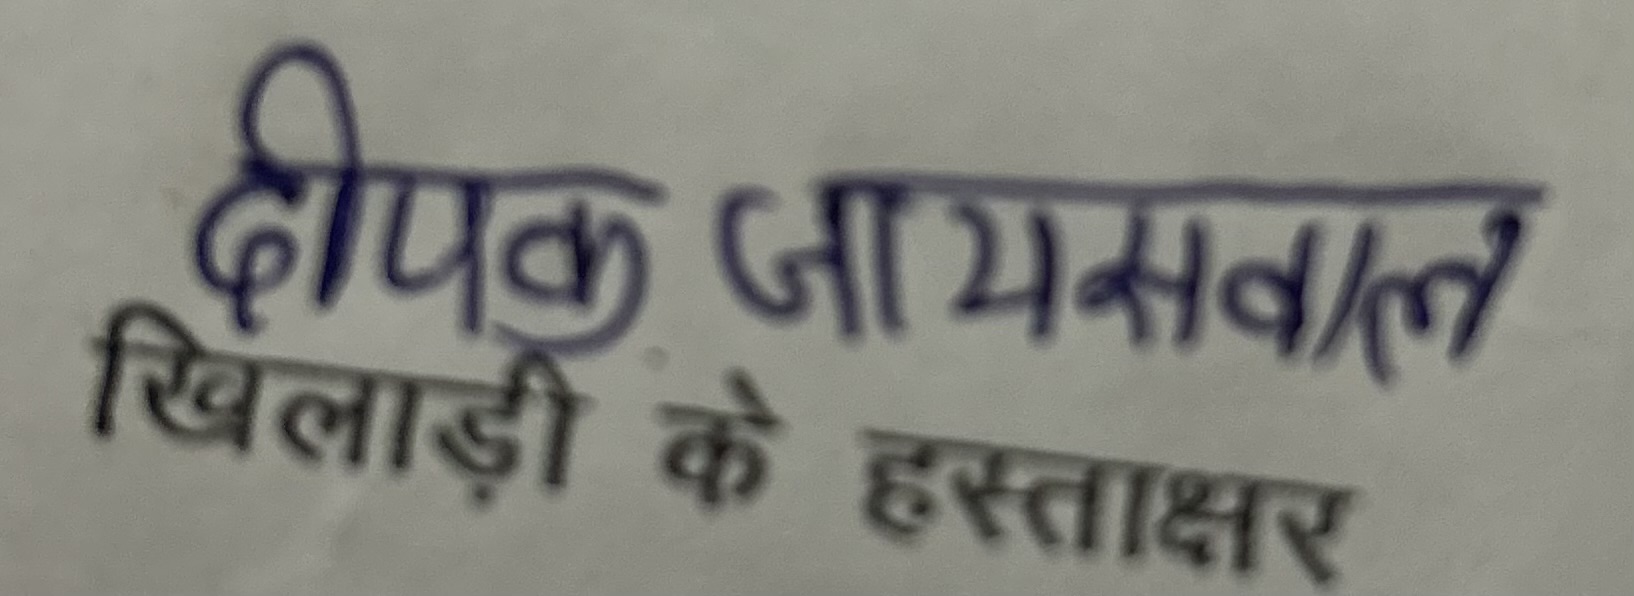 दीपक जायसवाल
खिलाड़ी के हस्ताक्षर